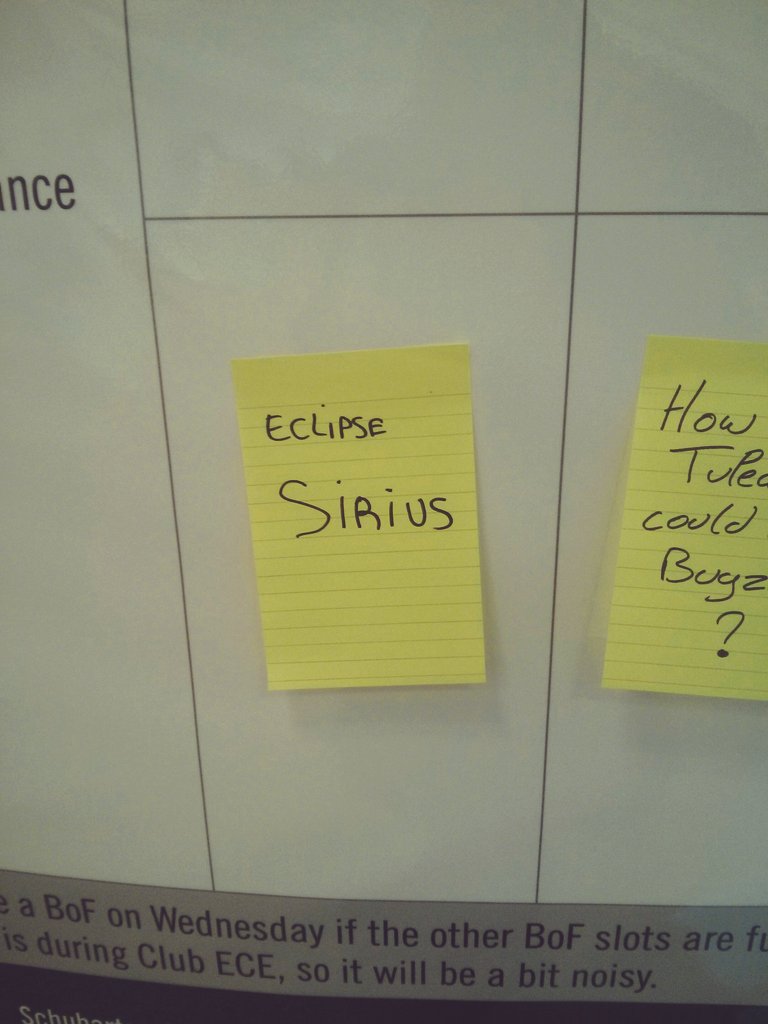 ance
ECLiPSE
SiRiUS
How
Tulea
could
Bugz
?
e a BoF on Wednesday if the other BoF slots are fu
is during Club ECE, so it will be a bit noisy.
Schubert